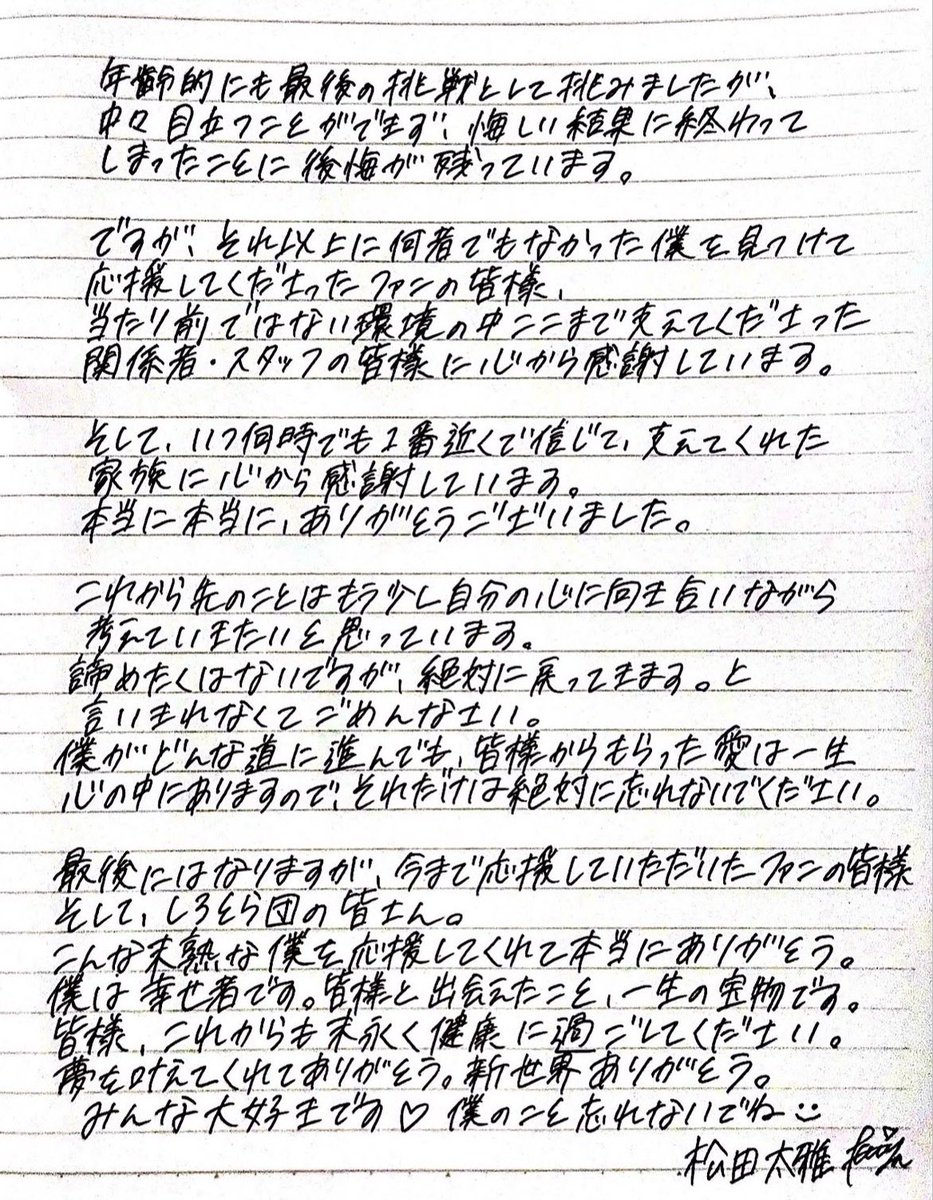 年齢的にも最後の挑戦として挑みましたが、
中々目立つことができず、悔しい結果に終わって
しまったことに後悔が残っています。
ですが、それ以上に何者でもなかった僕を見つけて
応援してくださったファンの皆様、
当たり前ではない環境の中ここまで支えてくださった
関係者・スタッフの皆様に心から感謝しています。
そして、いつ何時でも1番近くで信じて、支えてくれた
家族に心から感謝しています。
本当に本当に、ありがとうございました。
これから先のことはもう少し自分の心に向き合いながら
考えていきたいと思っています。
諦めたくはないですが、絶対に戻ってきます。と
言いきれなくてごめんなさい。
僕がどんな道に進んでも、皆様からもらった愛は一生
心の中にありますので、それだけは絶対に忘れないでください。
最後にはなりますが、今まで応援していただいたファンの皆様
そして、しろとら団の皆さん。
こんな未熟な僕を応援してくれて本当にありがとう。
僕は幸せ者です。皆様と出会えたこと、一生の宝物です。
皆様、これからも末永く健康に過ごしてください。
夢を叶えてくれてありがとう。新世界ありがとう。
みんな大好きです♡ 僕のこと忘れないでね
松田太雅